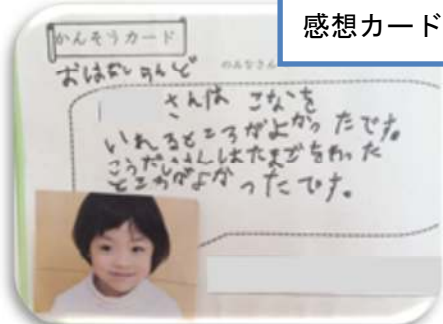 感想カード
かんそうカード
おはなしらんど
のみなさん
さんは こなを
いれるところがよかったです。
さんはたまごをわった
ところがよかったです。